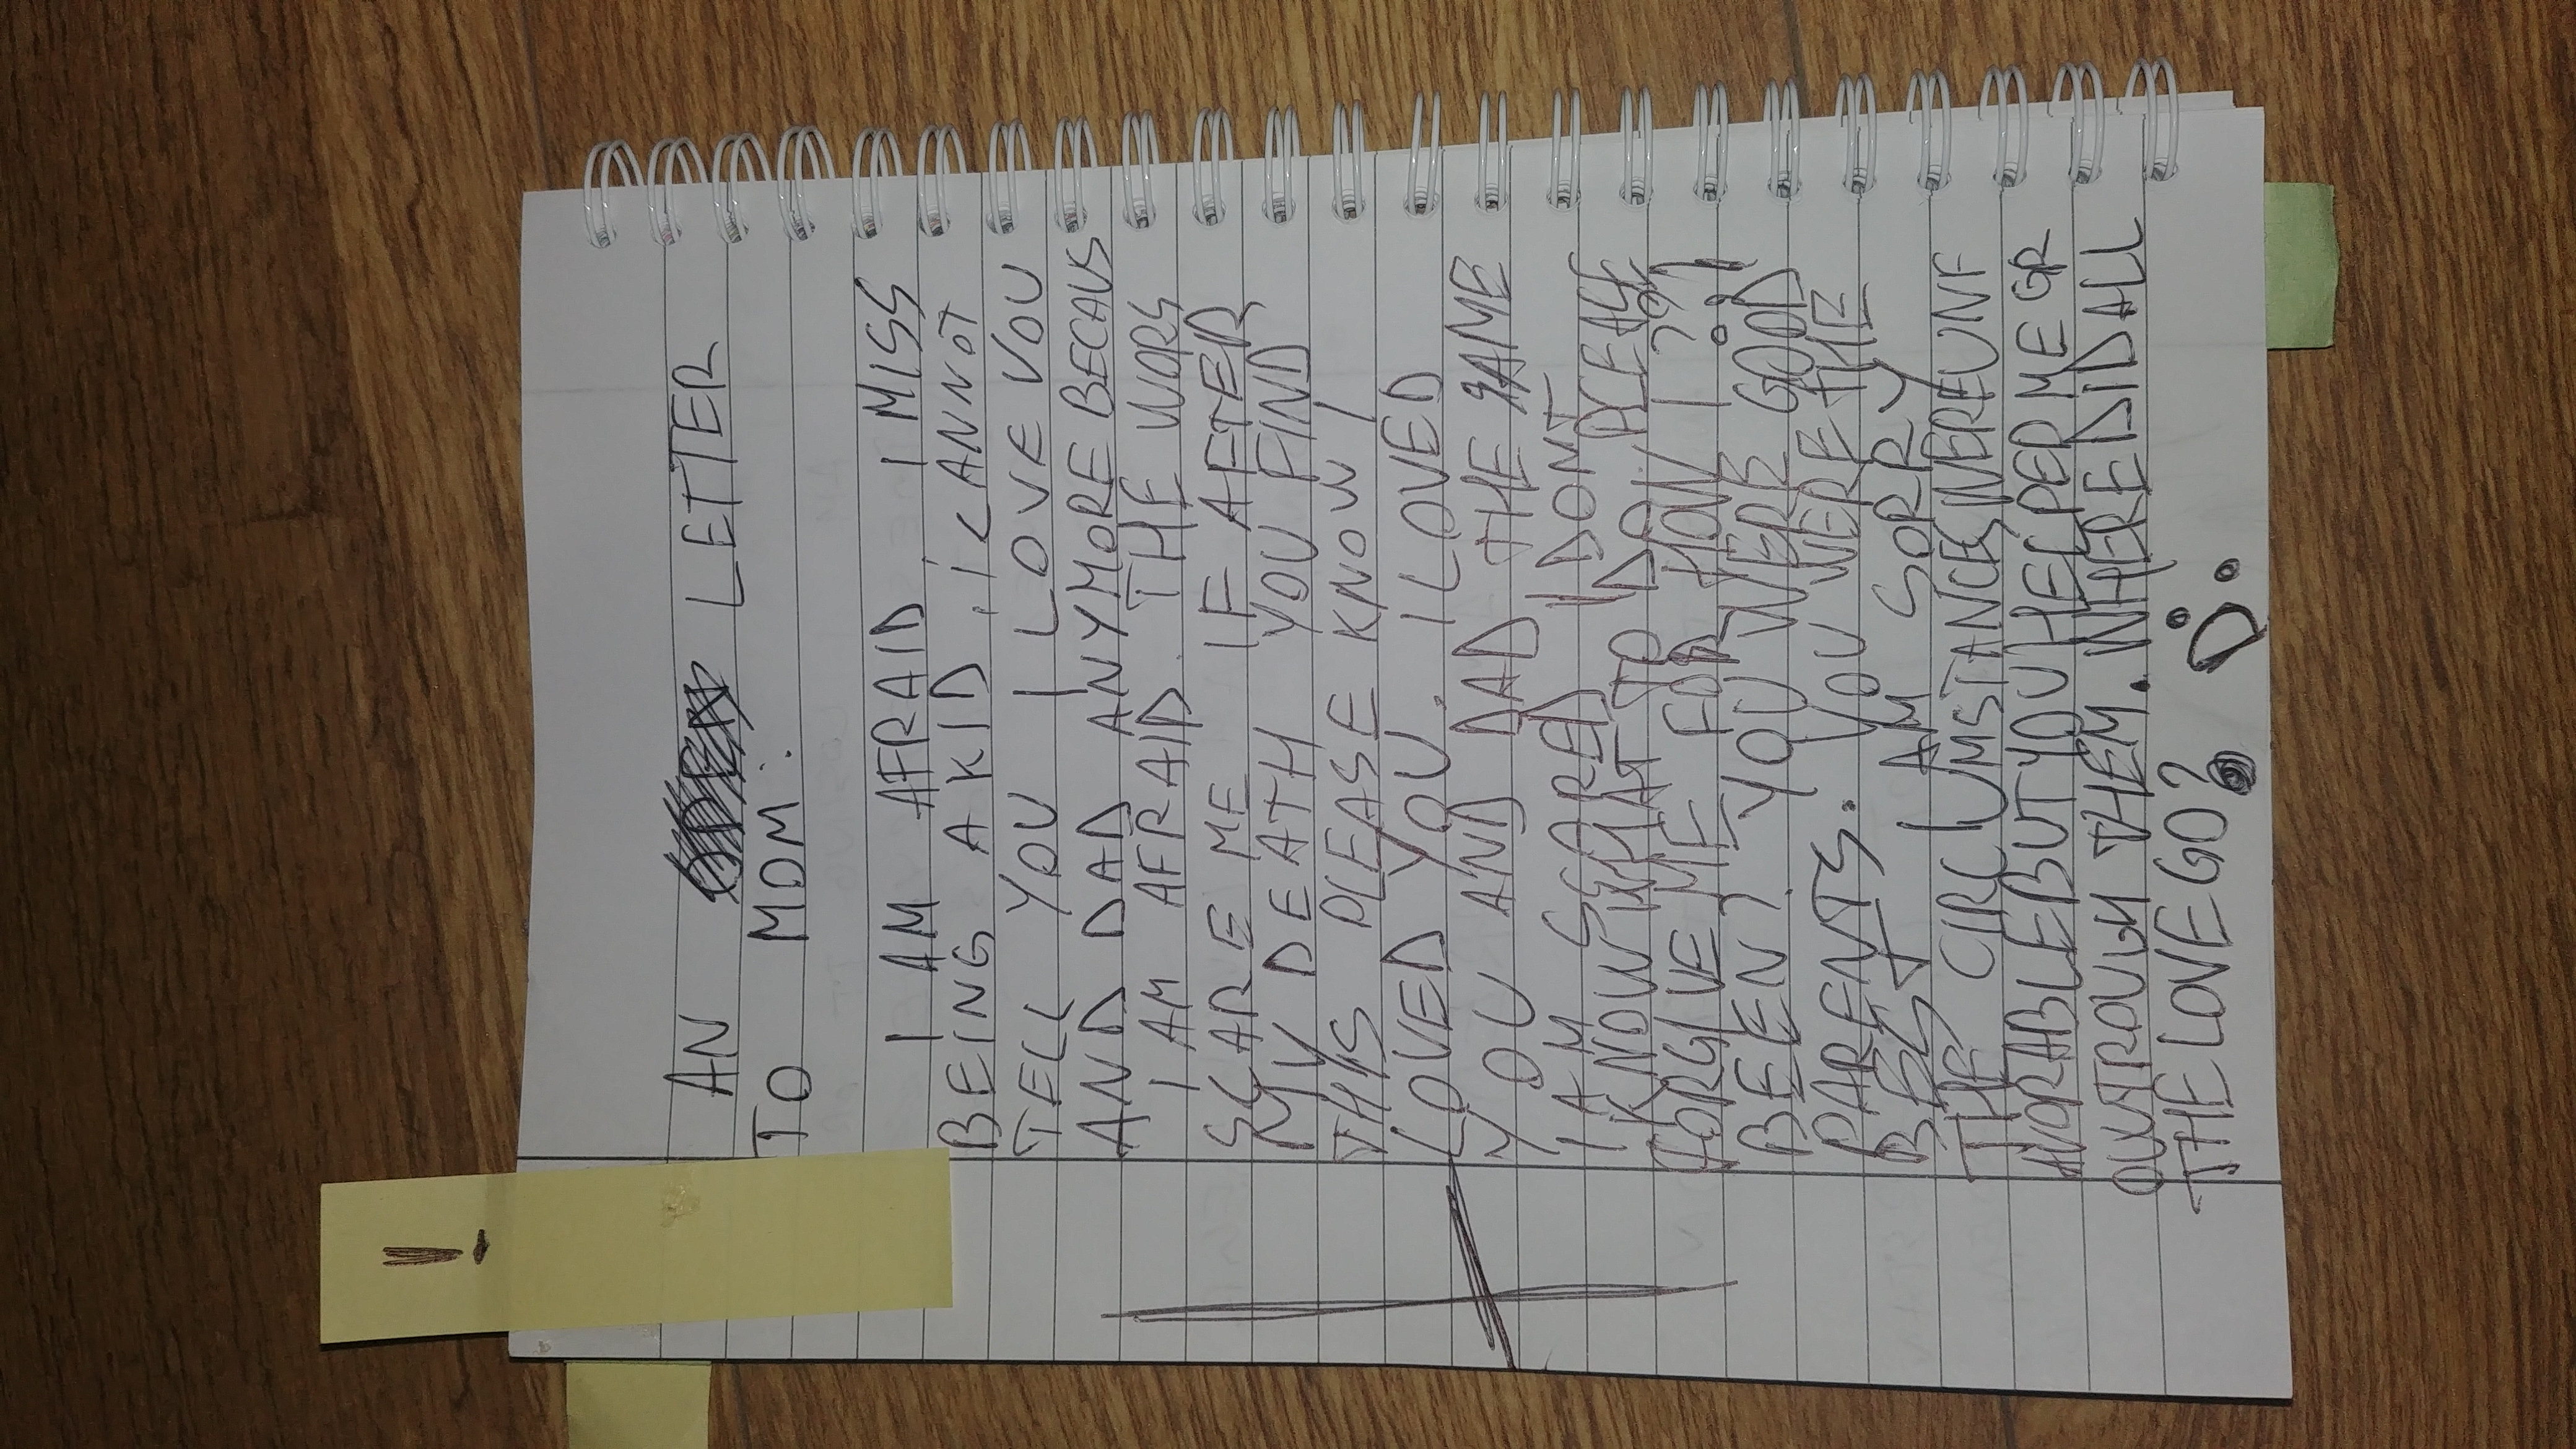 !
AN OPEN LETTER
TO MOM:
I AM AFRAID. I MISS
BEING A KID, I CANNOT
TELL YOU I LOVE YOU
AND DAD ANYMORE BECAUS
I AM AFRAID. THE WORS
SCARE ME IF AFTER
MY DEATH YOU FIND
THIS PLEASE KNOW I
LOVED YOU. I LOVED
YOU AND DAD THE SAME
I AM SCARED I DONT
KNOW WHAT TO DO. PLEASE
FORGIVE ME FOR HOW I ??
BEEN? YOU WERE GOOD
PARENTS. YOU WERE THE
BEST I AM SORRY
THE CIRCUMSTANCES WERE UNF
AVORABLE BUT YOU HELPED ME GR
OW TROUGH THEM. WHERE DID ALL
THE LOVE GO? D: